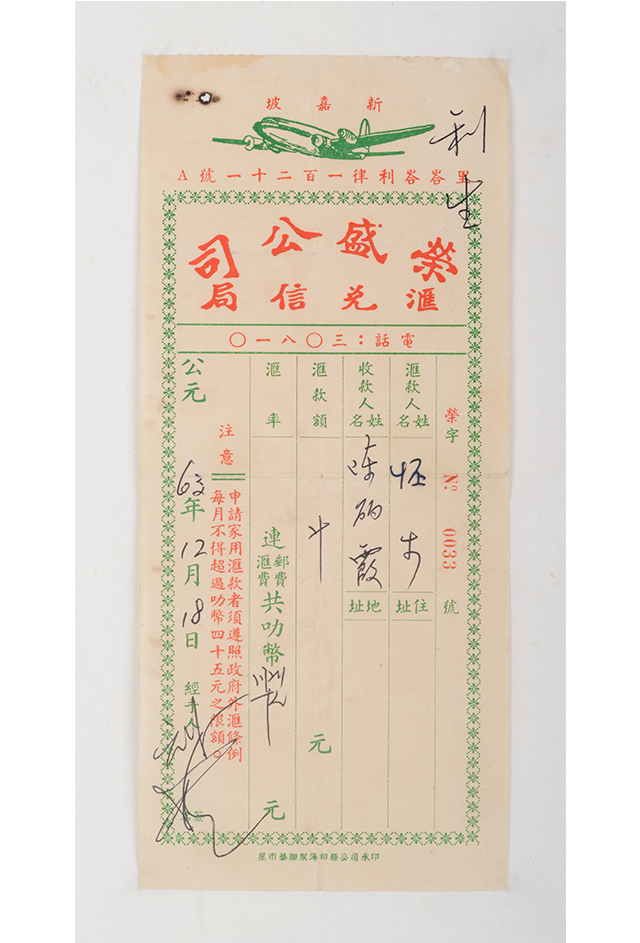 新嘉坡
里峇峇利律一百二十一號A
利生
榮盛公司
滙兌信局
電話：三〇八一〇
榮字 No. 0033 號
滙款人姓名
住址
收款人姓名
陳 霞
地址
滙款額
元
滙率
連郵費滙費共叻幣
元
注意
申請家用滙款者須遵照政府外滙條例
每月不得超過叻幣四十五元之限額。
公元 年12月18日
經手人
星市藝聯製簿印務公司承印